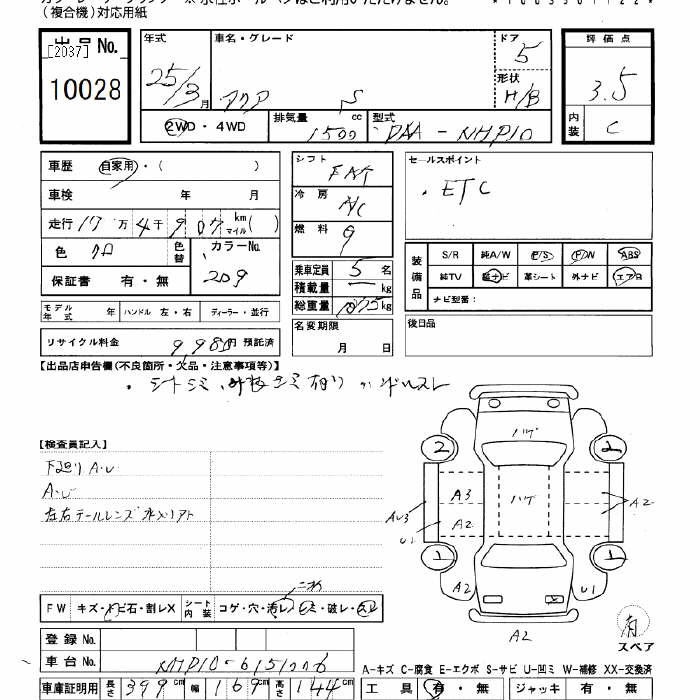 （複合機）対応用紙
出品No.
[2037]
10028
年式
25/3月
車名・グレード
アクア S
ドア
5
形状
H/B
評価点
3.5
内装
C
2WD・4WD
排気量 1500 cc
型式 DAA-NHP10
車歴 自家用・（ ）
車検 年 月
走行 17万4千907 km マイル( )
色 クロ
色替
カラーNo.
209
保証書 有・無
モデル年式 年
ハンドル 左・右
ディーラー・並行
リサイクル料金 9,980円 預託済
シフト
FAT
冷房
A/C
燃料
乗車定員 5 名
積載量 ー kg
総重量 1375 kg
名変期限
月 日
セールスポイント
・ETC
装備品
S/R 純A/W P/S P/W ABS
純TV 純ナビ 革シート 外ナビ エアB
ナビ型番：
後日品
【出品店申告欄(不良箇所・欠品・注意事項等)】
【検査員記入】
下廻りA・U
A・U
左右テールレンズ
FW キズ・トビ石・割レX
シート内装 コゲ・穴・汚レ・シミ・破レ・スレ
登録No.
車台No. NHP10-6151206
車庫証明用 長さ 399cm 幅 169cm 高さ 144cm
ハゲ
2 2
A3
ハゲ
A2
A2
AU3
U1
1 1
A2
U1
A2
有
スペア
A-キズ C-腐食 E-エクボ S-サビ U-凹ミ W-補修 XX-交換済
工具 有・無 ジャッキ 有・無